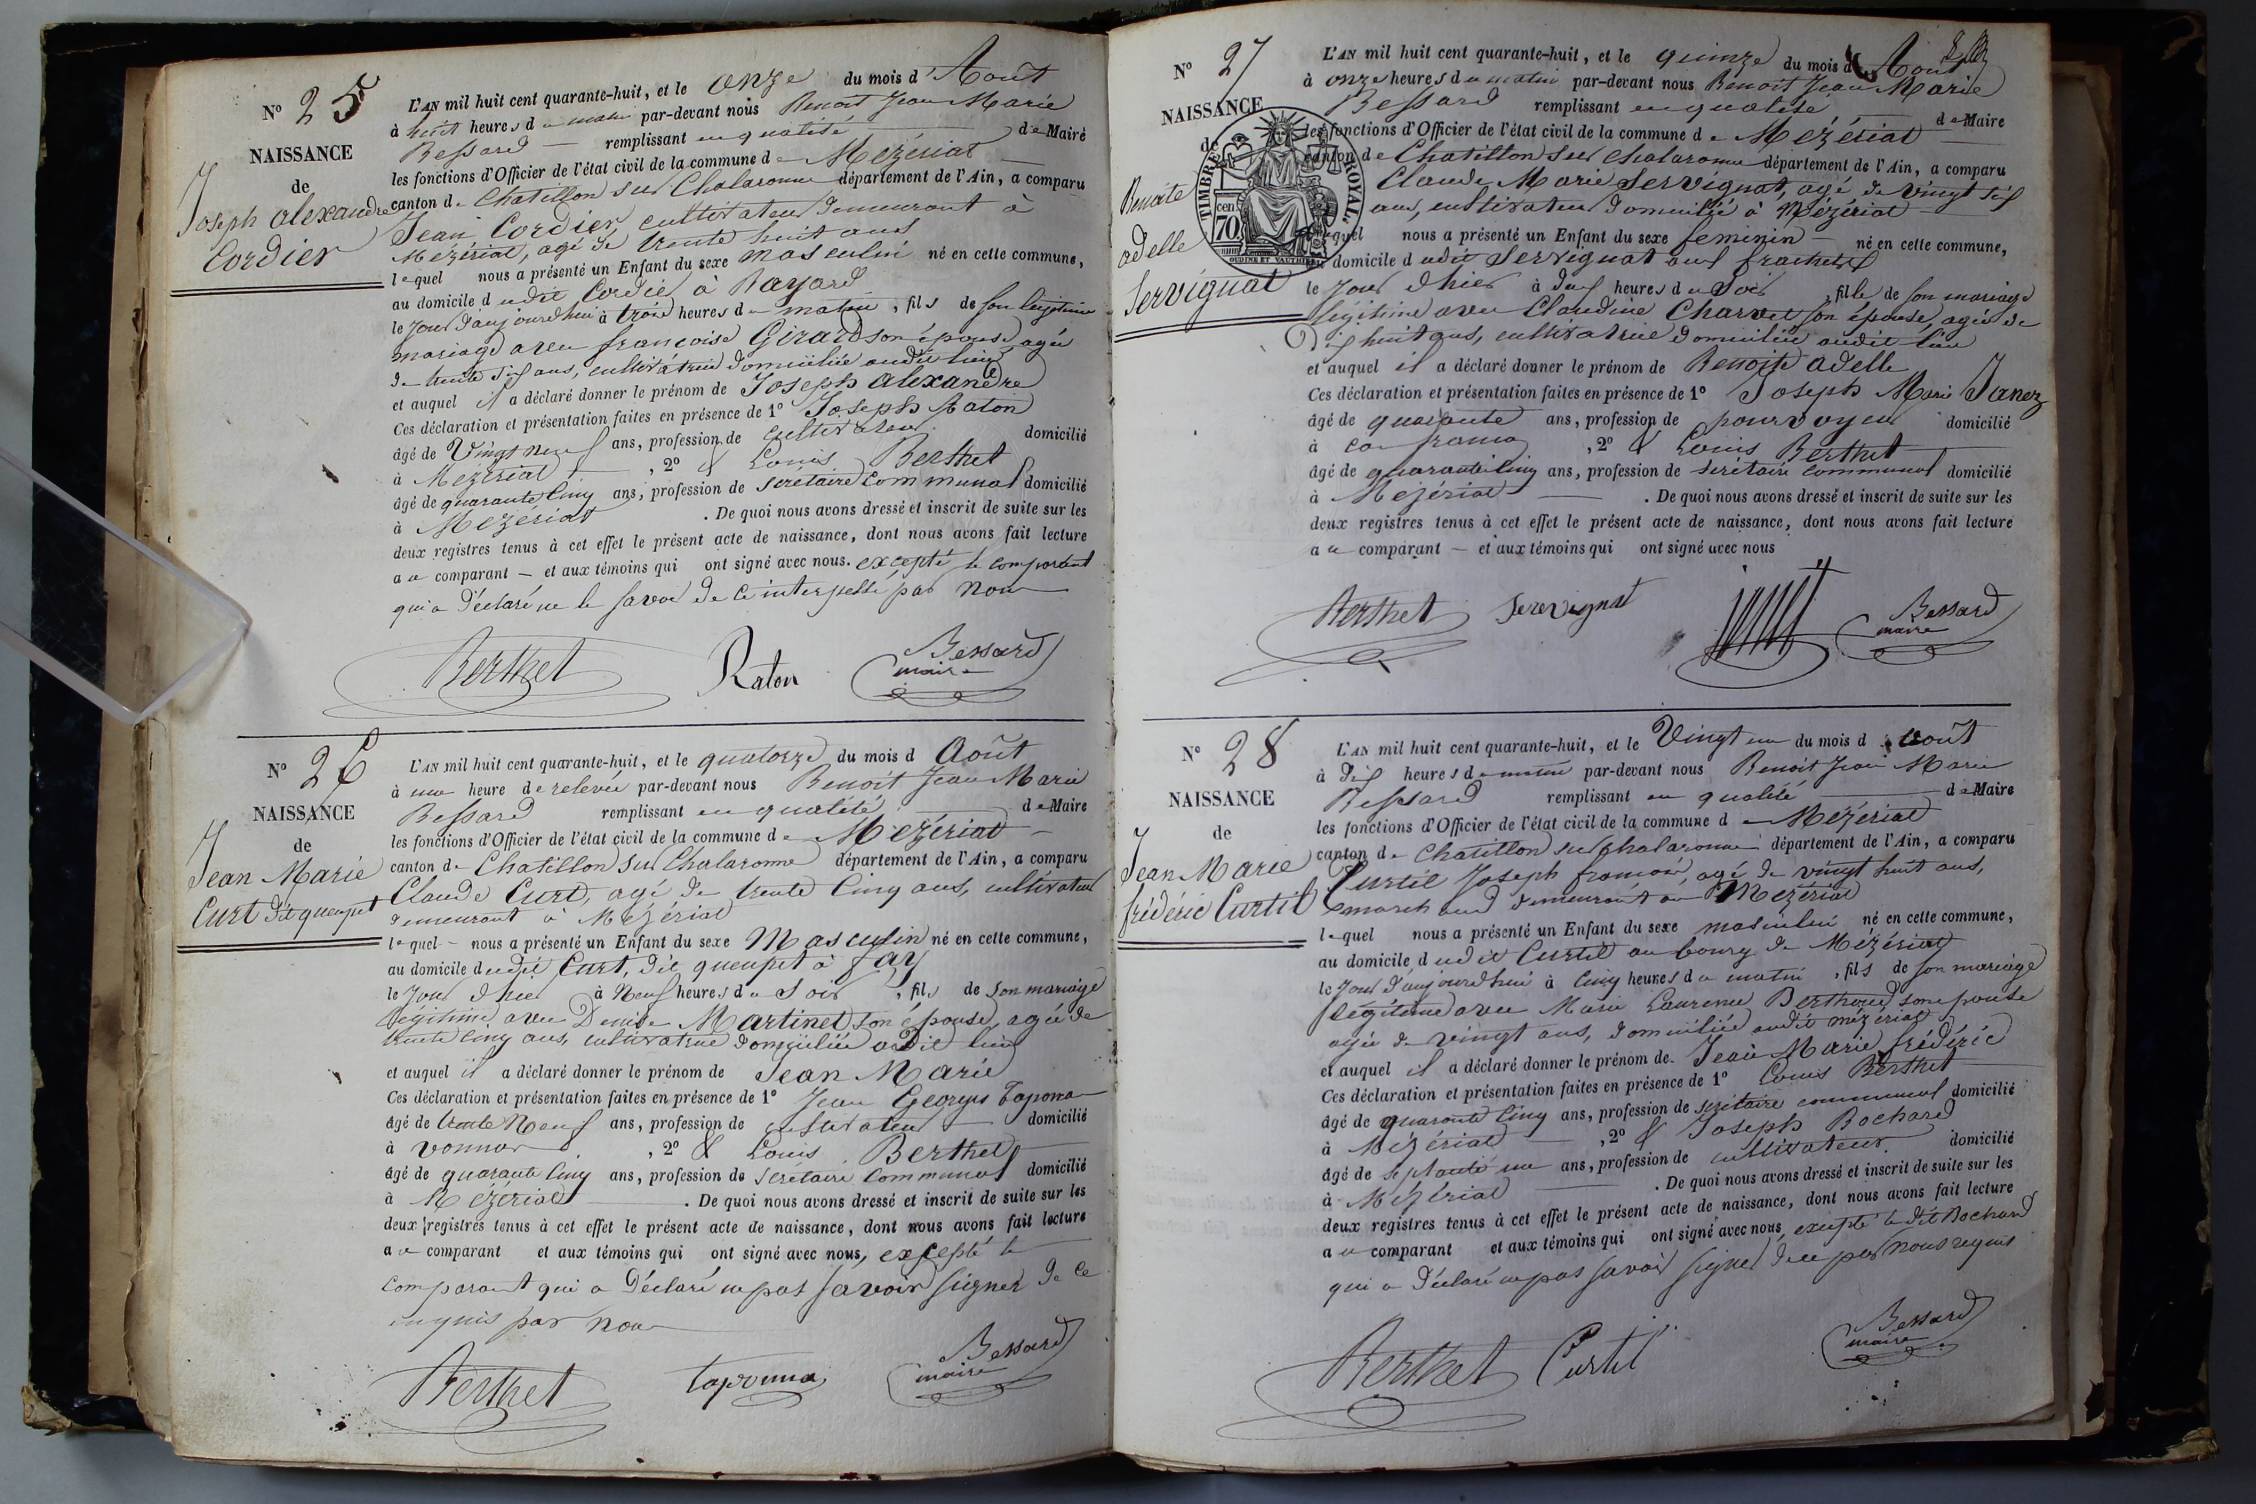 N° 25
NAISSANCE
de
Joseph alexandre
Cordier
L'AN mil huit cent quarante-huit, et le onze du mois d'Août
à huit heures du matin par-devant nous Benoit Jean Marie
Bessard remplissant en qualité de Maire
les fonctions d'Officier de l'état civil de la commune de Mézériat
canton de Chatillon sur Chalaronne département de l'Ain, a comparu
Jean Cordier, cultivateur demeurant à
Mézériat, agé de trente huit ans
lequel nous a présenté un Enfant du sexe masculin né en cette commune,
au domicile dudit Cordier à Rayard
le jour d'aujourd'hui à trois heures du matin, fils de son légitime
mariage avec françoise Girard son épouse, agée
de trente six ans, cultivatrice domiciliée audit lieu
et auquel il a déclaré donner le prénom de Joseph alexandre
Ces déclaration et présentation faites en présence de 1° Joseph Raton
âgé de Vingt neuf ans, profession de cultivateur domicilié
à Mézériat, 2° & Louis Berthet
âgé de quarante cinq ans, profession de serétaire communal domicilié
à Mézériat. De quoi nous avons dressé et inscrit de suite sur les
deux registres tenus à cet effet le présent acte de naissance, dont nous avons fait lecture
au comparant — et aux témoins qui ont signé avec nous. excepté le comparant
qui a déclaré ne le savoir de ce interpellé par nous
Berthet Raton Bessard
maire
N° 26
NAISSANCE
de
Jean Marie
Curt dit queupet
L'AN mil huit cent quarante-huit, et le quatorze du mois d Août
à une heure de relevée par-devant nous Benoit Jean Marie
Bessard remplissant en qualité de Maire
les fonctions d'Officier de l'état civil de la commune de Mézériat
canton de Chatillon sur Chalaronne département de l'Ain, a comparu
Claude Curt, agé de trente cinq ans, cultivateur
demeurant à Mézériat
lequel nous a présenté un Enfant du sexe Masculin né en cette commune,
au domicile dudit Curt, dit queupet à fay
le jour d'hier à Neuf heures du soir, fils de son mariage
légitime avec Denise Martinet son épouse, agée de
trente cinq ans, cultivatrice domiciliée audit lieu
et auquel il a déclaré donner le prénom de Jean Marie
Ces déclaration et présentation faites en présence de 1° Jean Georges Taponna
âgé de trente Neuf ans, profession de cultivateur domicilié
à vonnas, 2° & Louis Berthet
âgé de quarante cinq ans, profession de serétaire communal domicilié
à Mézériat. De quoi nous avons dressé et inscrit de suite sur les
deux registres tenus à cet effet le présent acte de naissance, dont nous avons fait lecture
au comparant et aux témoins qui ont signé avec nous, excepté le
comparant qui a déclaré ne pas savoir signer de ce
requis par nous
Berthet taponna Bessard
maire
N° 27
NAISSANCE
de
Benoite
adelle
Servignat
TIMBRE ROYAL.
70 cen
OUDINÉ ET VAUTHIER
L'AN mil huit cent quarante-huit, et le quinze du mois d'Aout
à onze heures du matin par-devant nous Benoit Jean Marie
Bessard remplissant en qualité de Maire
les fonctions d'Officier de l'état civil de la commune de Mézériat
canton de Chatillon sur chalaronne département de l'Ain, a comparu
Claude Marie Servignat, agé de vingt six
ans, cultivateur domicilié à Mézériat
lequel nous a présenté un Enfant du sexe feminin né en cette commune,
au domicile dudit Servignat aux
le jour d'hier à dix heures du soir, fille de son mariage
légitime avec Claudine Charvet son épouse, agée de
Dix huit ans, cultivatrice domiciliée audit lieu
et auquel il a déclaré donner le prénom de Benoite adelle
Ces déclaration et présentation faites en présence de 1° Joseph Marie Janez
âgé de quarante ans, profession de pourvoyeur domicilié
à, 2° & Louis Berthet
âgé de quarante cinq ans, profession de serétaire communal domicilié
à Mézériat. De quoi nous avons dressé et inscrit de suite sur les
deux registres tenus à cet effet le présent acte de naissance, dont nous avons fait lecture
au comparant — et aux témoins qui ont signé avec nous
Berthet Servignat Bessard
maire
N° 28
NAISSANCE
de
Jean Marie
frédéric Curtil
L'AN mil huit cent quarante-huit, et le Vingt un du mois d'août
à dix heures du matin par-devant nous Benoit Jean Marie
Bessard remplissant en qualité de Maire
les fonctions d'Officier de l'état civil de la commune de Mézériat
canton de Chatillon sur chalaronne département de l'Ain, a comparu
Curtil Joseph françois, agé de vingt huit ans,
marchand demeurant au Mézériat
lequel nous a présenté un Enfant du sexe masculin né en cette commune,
au domicile dudit Curtil au bourg de Mézériat
le jour d'aujourd'hui à cinq heures du matin, fils de son mariage
légitime avec Marie Laurence son épouse
agée de vingt ans, domiciliée audit mézériat
et auquel il a déclaré donner le prénom de Jean Marie frédéric
Ces déclaration et présentation faites en présence de 1° Louis Berthet
âgé de quarante cinq ans, profession de serétaire communal domicilié
à Mézériat, 2° & Joseph Bochard
âgé de septante un ans, profession de cultivateur domicilié
à Mézériat. De quoi nous avons dressé et inscrit de suite sur les
deux registres tenus à cet effet le présent acte de naissance, dont nous avons fait lecture
au comparant et aux témoins qui ont signé avec nous, excepté le dit Bochard
qui a déclaré ne pas savoir signer de ce par nous requis
Berthet Curtil Bessard
maire